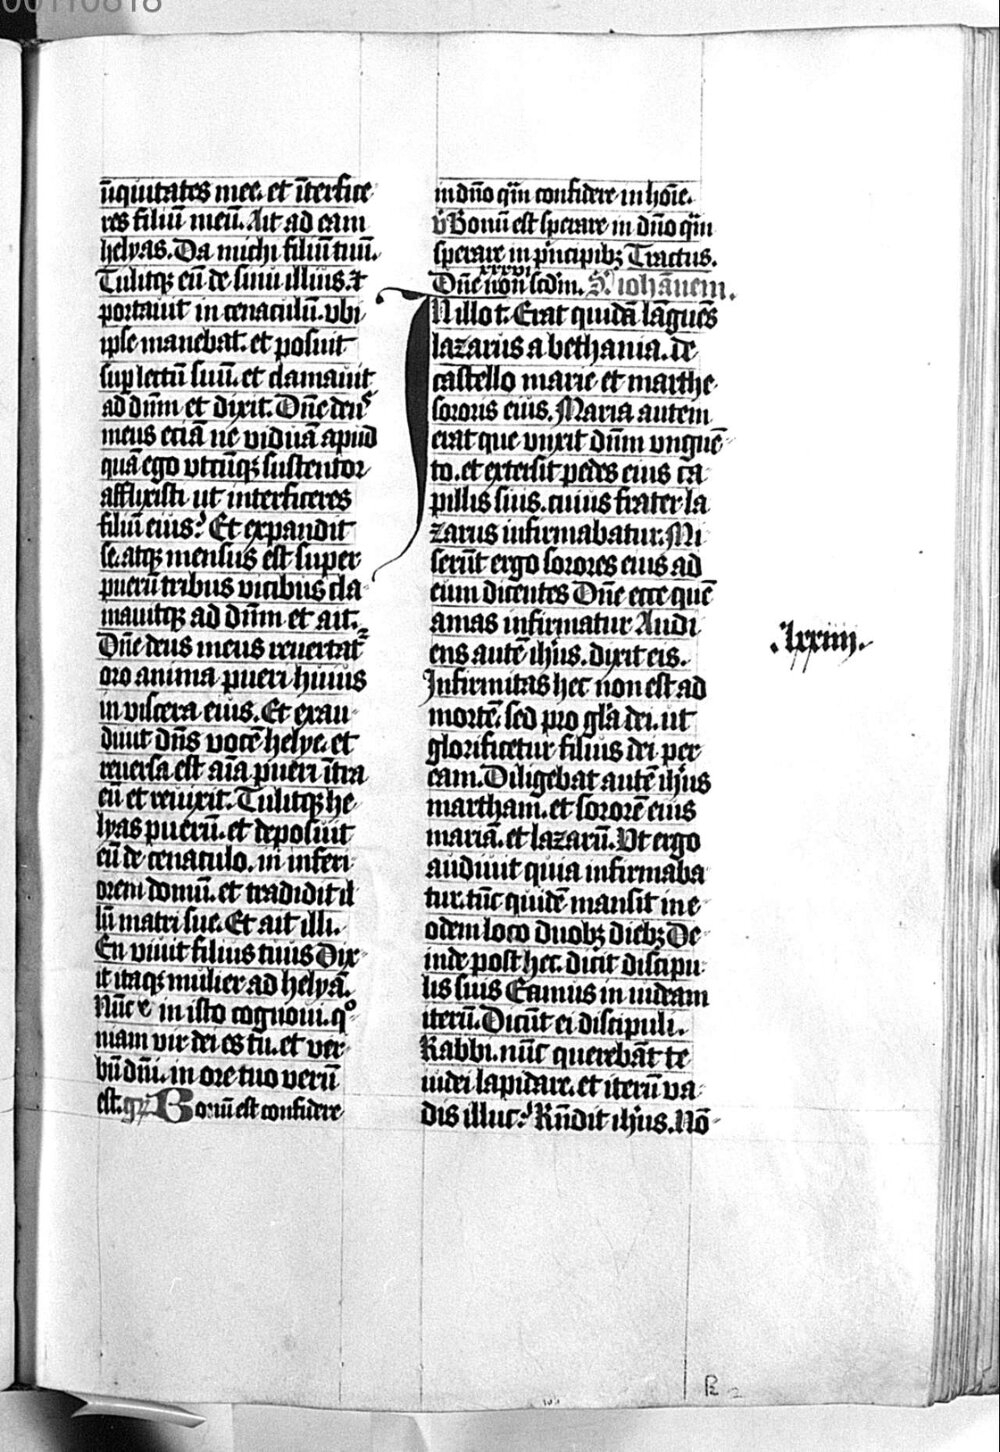 00110818
iniquitates mee. et īterfice
res filiū meū. Ait ad eam
helyas. Da michi filiū tuū.
Tulitqꝫ eū de sinu illius. ⁊
portauit in cenaculū. vbi
ipse manebat. et posuit
sup lectū suū. et clamauit
ad dn̄m et dixit. Dn̄e deus
meus eciā ne viduā apud
quā ego vtcūqꝫ sustentor
afflixisti ut interficeres
filiū eius? Et expandit
se. atqꝫ mensus est super
puerū tribus vicibus cla
mauitqꝫ ad dn̄m et ait.
Dn̄e deus meus reuertat᷑
oro anima pueri huius
in viscera eius. Et exau
diuit dn̄s vocē helye. et
reuersa est aīa pueri ītra
eū et reuixit. Tulitqꝫ he
lyas puerū. et deposuit
eū de cenaculo. in inferi
orem domū. et tradidit il
lū matri sue. Et ait illi.
En viuit filius tuus Dix
it itaqꝫ mulier ad helyā.
Nūc in isto cognoui. qͦ
niam vir dei es tu. et ver
bū dn̄i. in ore tuo verū
est. gr̄. Bonū est confidere
in dn̄o qͣm confidere in hoīe.
v̄ Bonū est sperare in dn̄o qͣm
sperare in pͥncipibꝫ Tractus.
xxxvi
Dn̄e non scdm̄. S. iohānem.
In illo t. Erat quidā lāguēs
lazarus a bethania. de
castello marie et marthe
sororis eius. Maria autem
erat que vnxit dn̄m vnguē
to. et extersit pedes eius ca
pillis suis. cuius frater la
zarus infirmabatur. Mi
serūt ergo sorores eius ad
eum dicentes Dn̄e ecce quē
amas infirmatur Audi
ens autē ih̄us. dixit eis.
Infirmitas hec non est ad
mortē. sed pro gl̄a dei. ut
glorificetur filius dei per
eam. Diligebat autē ih̄us
martham. et sororē eius
mariā. et lazarū. Vt ergo
audiuit quia infirmaba
tur. tūc quidē mansit in e
odem loco duobꝫ diebꝫ De
inde post hec. dicit discipu
lis suis Eamus in iudeam
iterū. Dicūt ei discipuli.
Rabbi. nūc querebāt te
iudei lapidare. et iterū va
dis illuc? Rn̄dit ih̄us. Nō
.lxxiiii.